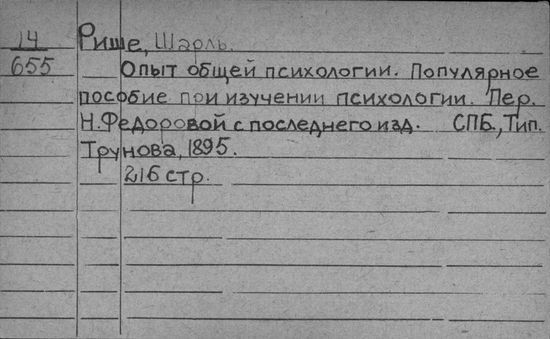 14 Рише, Шарль.
655 Опыт общей психологии. Популярное
пособие при изучении психологии. Пер.
Н. Федоровой с последнего изд. СПБ., Тип.
Трунова, 1895.
216 стр.